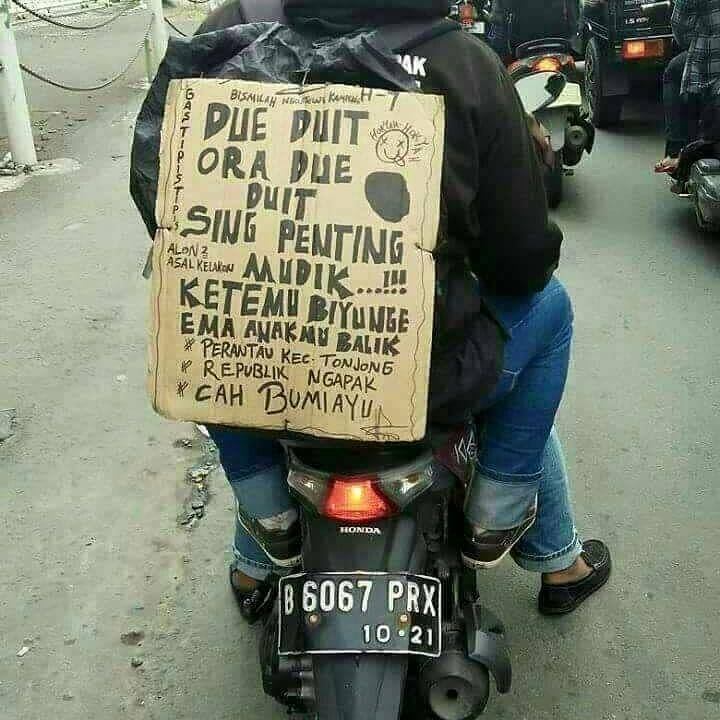 PAK
GASTIPISTIPIS
BISMILAH
H-7
DUE DUIT
ORA DUE
DUIT
SING PENTING
ALON2
ASAL KELAKON
MUDIK...!!!
KETEMU BIYUNGE
EMA ANAKMU BALIK
* PERANTAU KEC. TONJONG
* REPUBLIK NGAPAK
* CAH BUMIAYU
HONDA
B 6067 PRX
10·21